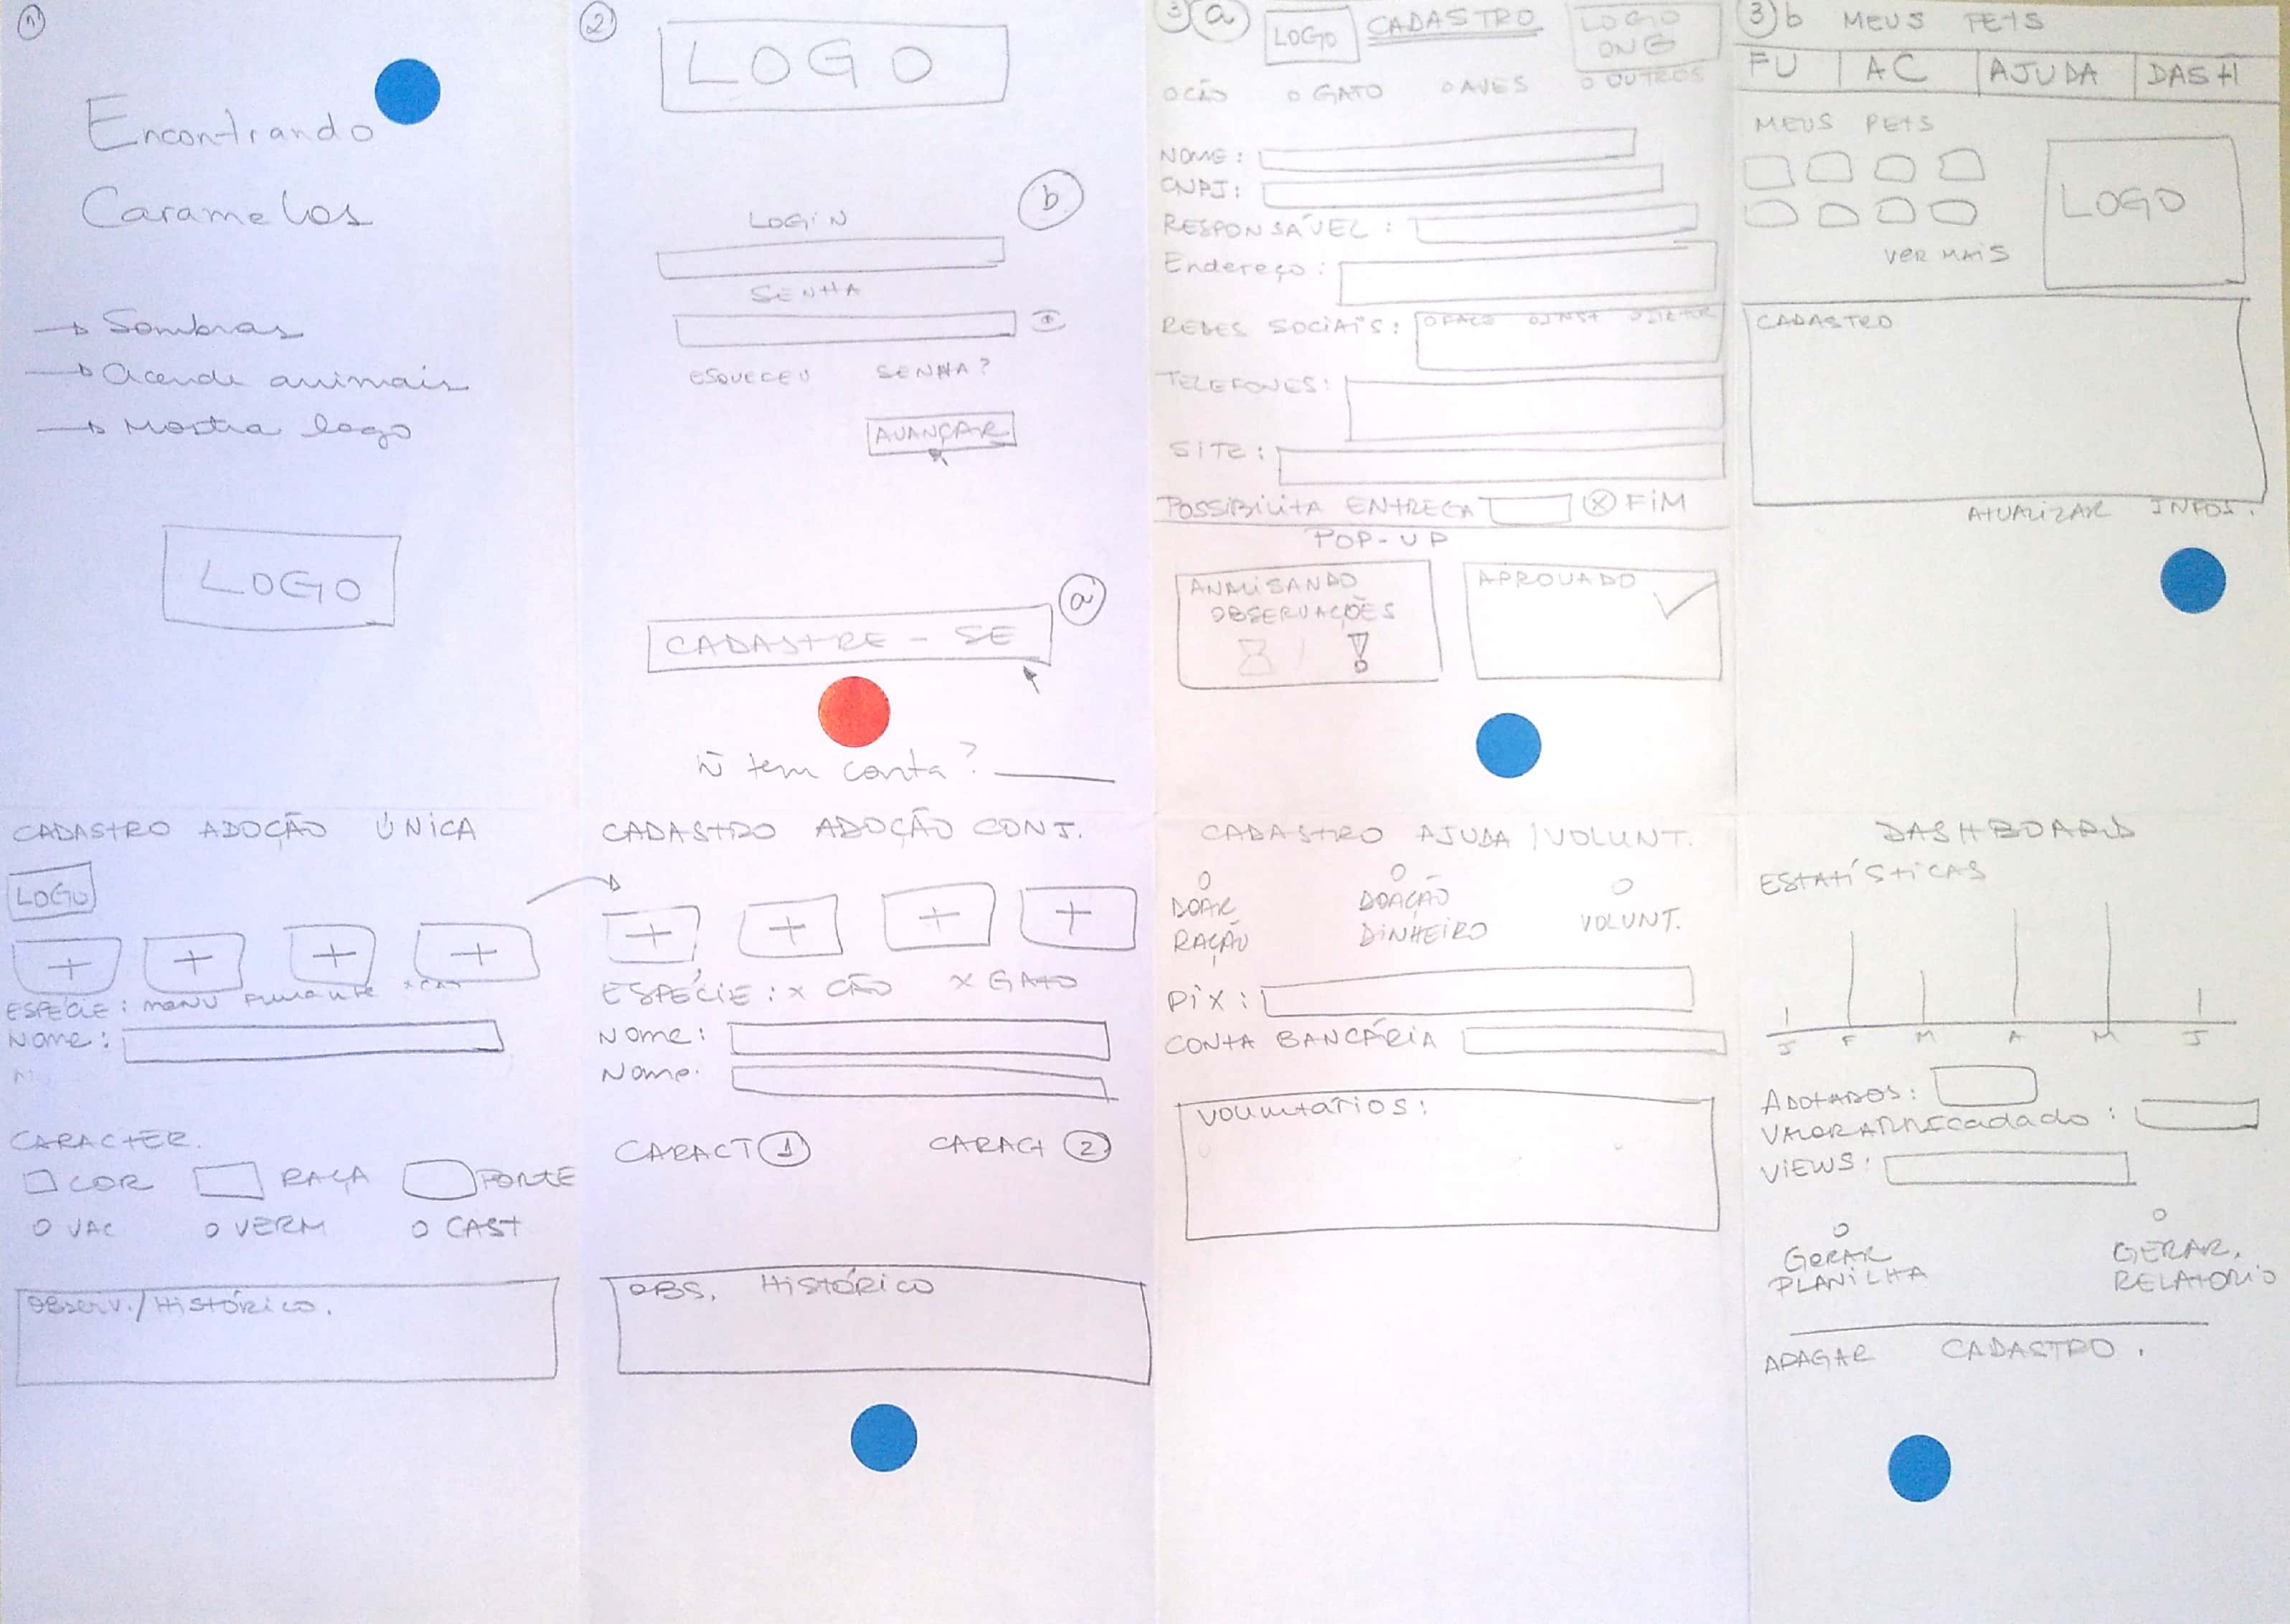 1
Encontrando
Caramelos
→ Sombras
→ Acende animais
→ Mostra logo
LOGO
2
LOGO
b
LOGIN
SENHA
ESQUECEU SENHA?
AVANÇAR
a
CADASTRE-SE
Ñ tem conta?
3 a
LOGO
CADASTRO
LOGO
ONG
O CÃO O GATO O AVES O OUTROS
NOME:
CNPJ:
RESPONSÁVEL:
Endereço:
REDES SOCIAIS: O FACE O INST
TELEFONES:
SITE:
POSSIBILITA ENTREGA X FIM
POP-UP
ANALISANDO
OBSERVAÇÕES
!
APROVADO
3 b MEUS PETS
FU AC AJUDA DASH
MEUS PETS
LOGO
VER MAIS
CADASTRO
ATUALIZAR INFOS.
CADASTRO ADOÇÃO ÚNICA
LOGO
+ + + +
ESPÉCIE: MENU
Nome:
CARACTER.
COR RAÇA PORTE
O VAC O VERM O CAST
OBSERV./HISTÓRICO.
CADASTRO ADOÇÃO CONJ.
+ + + +
ESPÉCIE: X CÃO X GATO
Nome:
Nome:
CARACT 1 CARACT 2
OBS. HISTÓRICO
CADASTRO AJUDA/VOLUNT.
DOAR
RAÇÃO
DOAÇÃO
DINHEIRO
VOLUNT.
PIX:
CONTA BANCÁRIA
VOLUNTÁRIOS:
DASHBOARD
ESTATÍSTICAS
J F M A M J
ADOTADOS:
VALOR ARRECADADO:
VIEWS:
GERAR
PLANILHA
GERAR
RELATORIO
APAGAR CADASTRO.